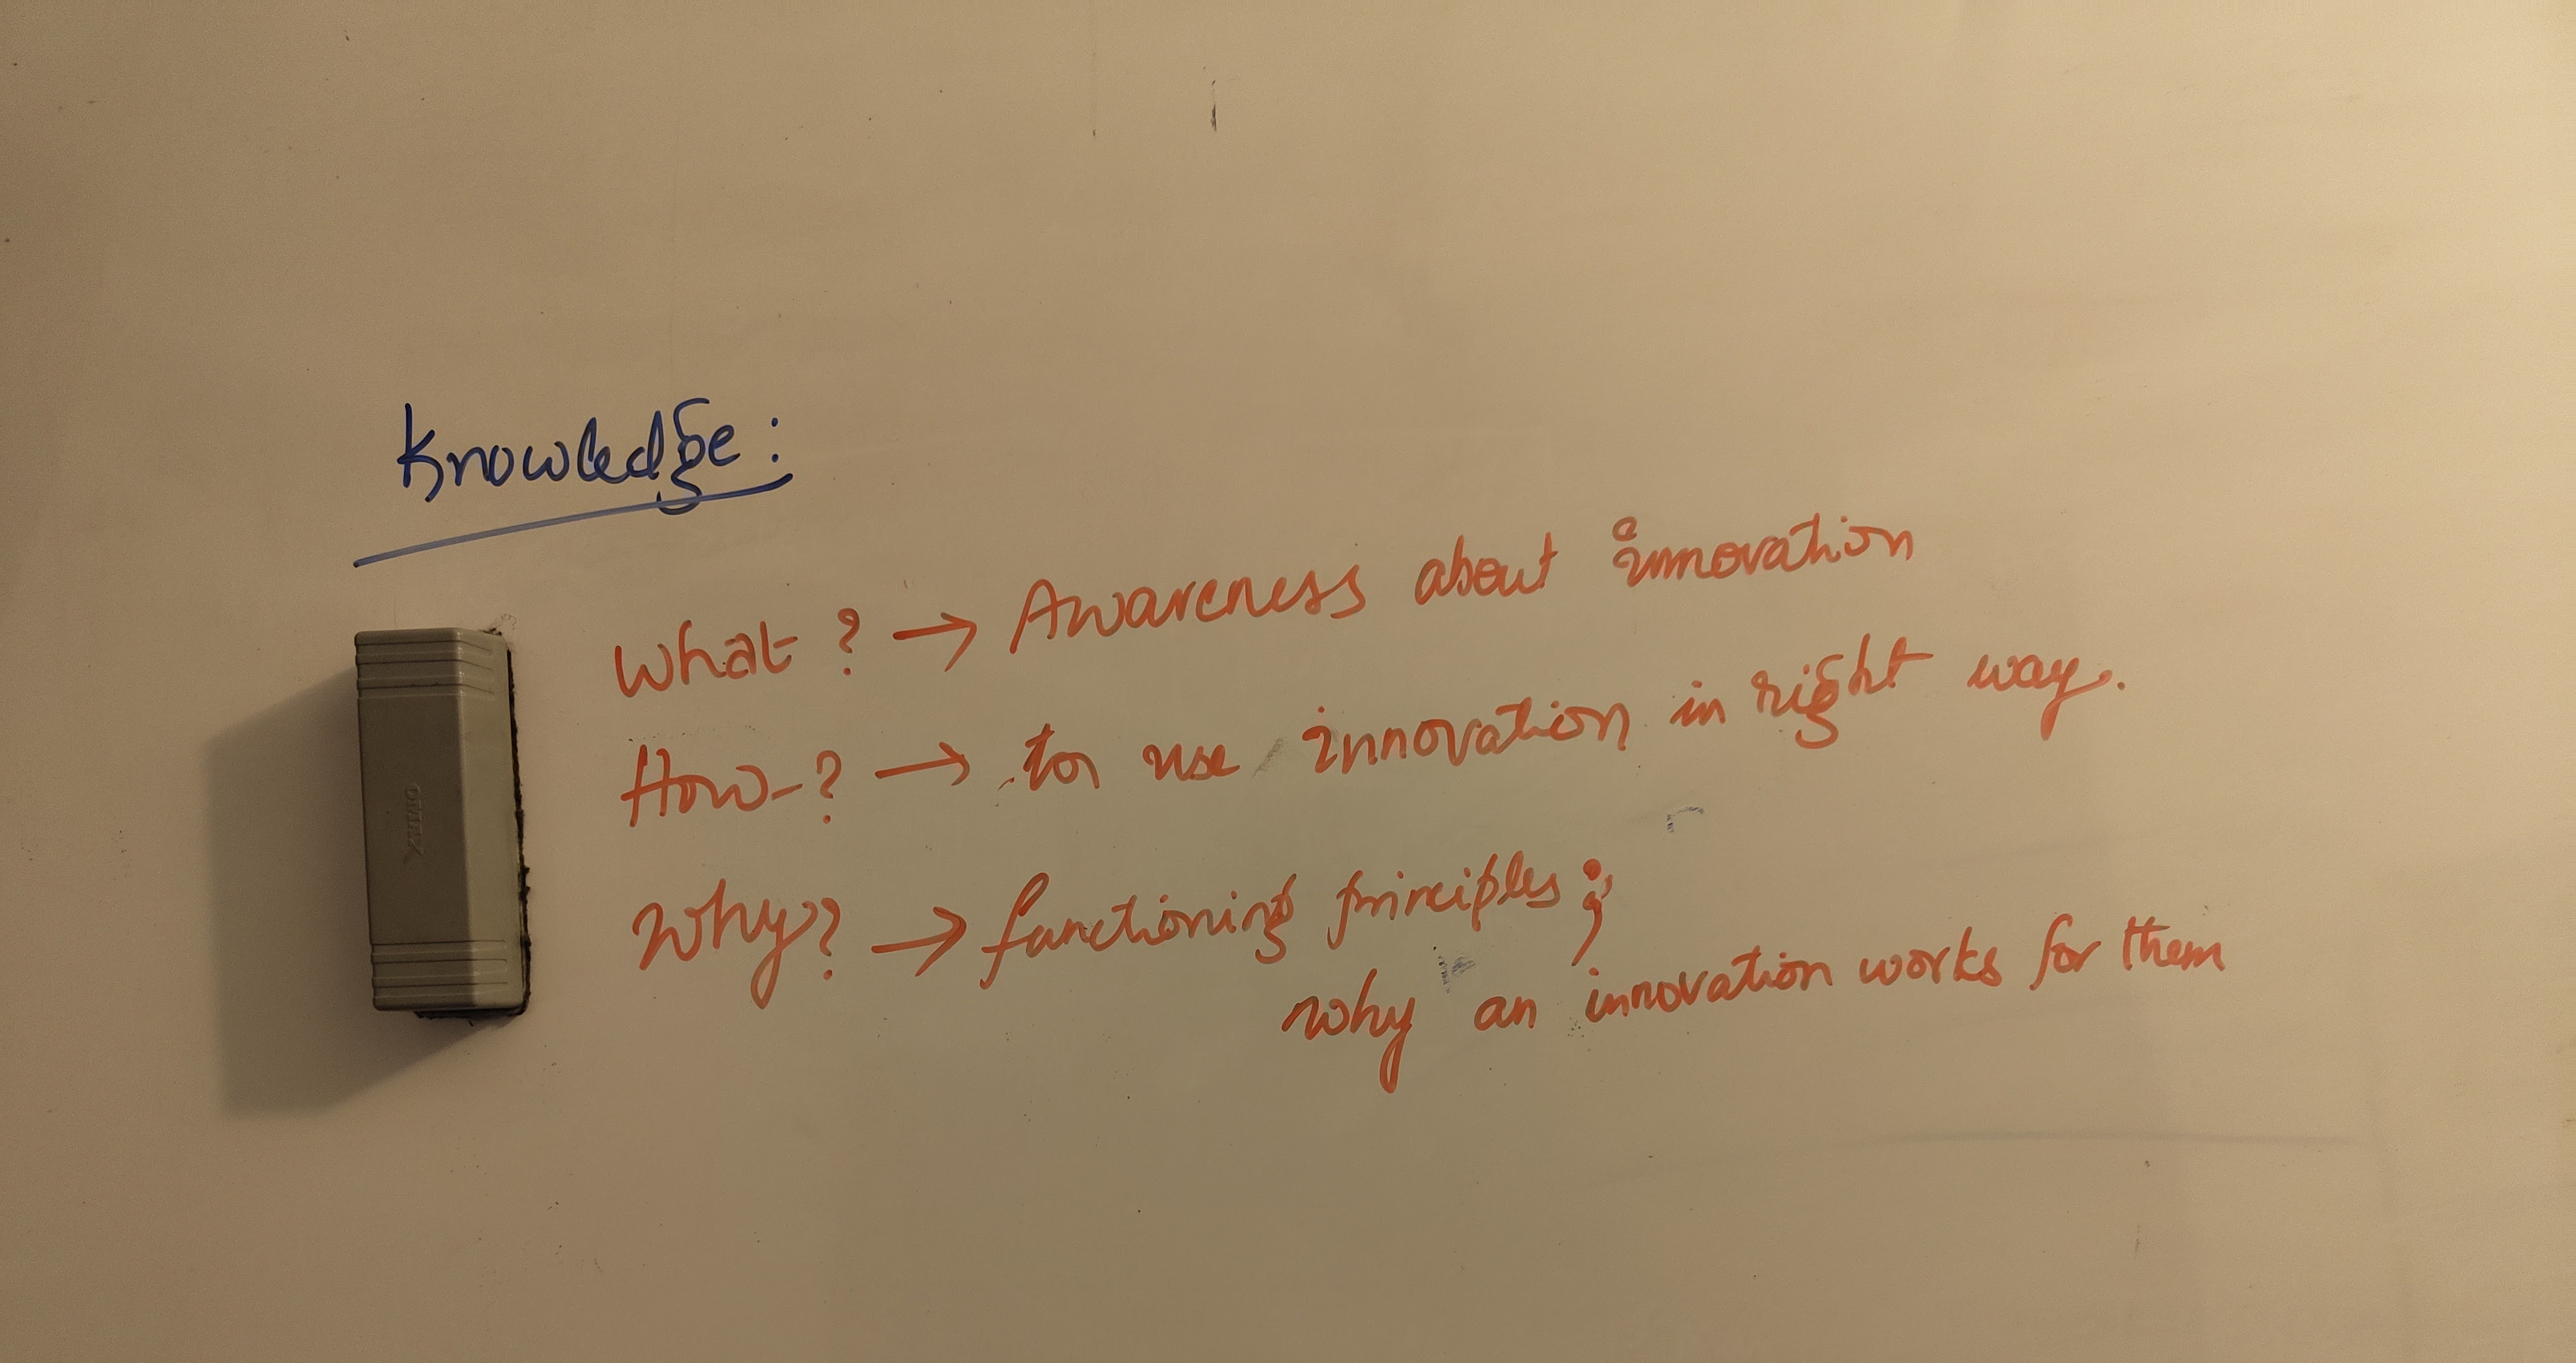 Knowledge:
What? → Awareness about innovation
How-? → to use innovation in right way.
Why? → functioning principles;
why an innovation works for them